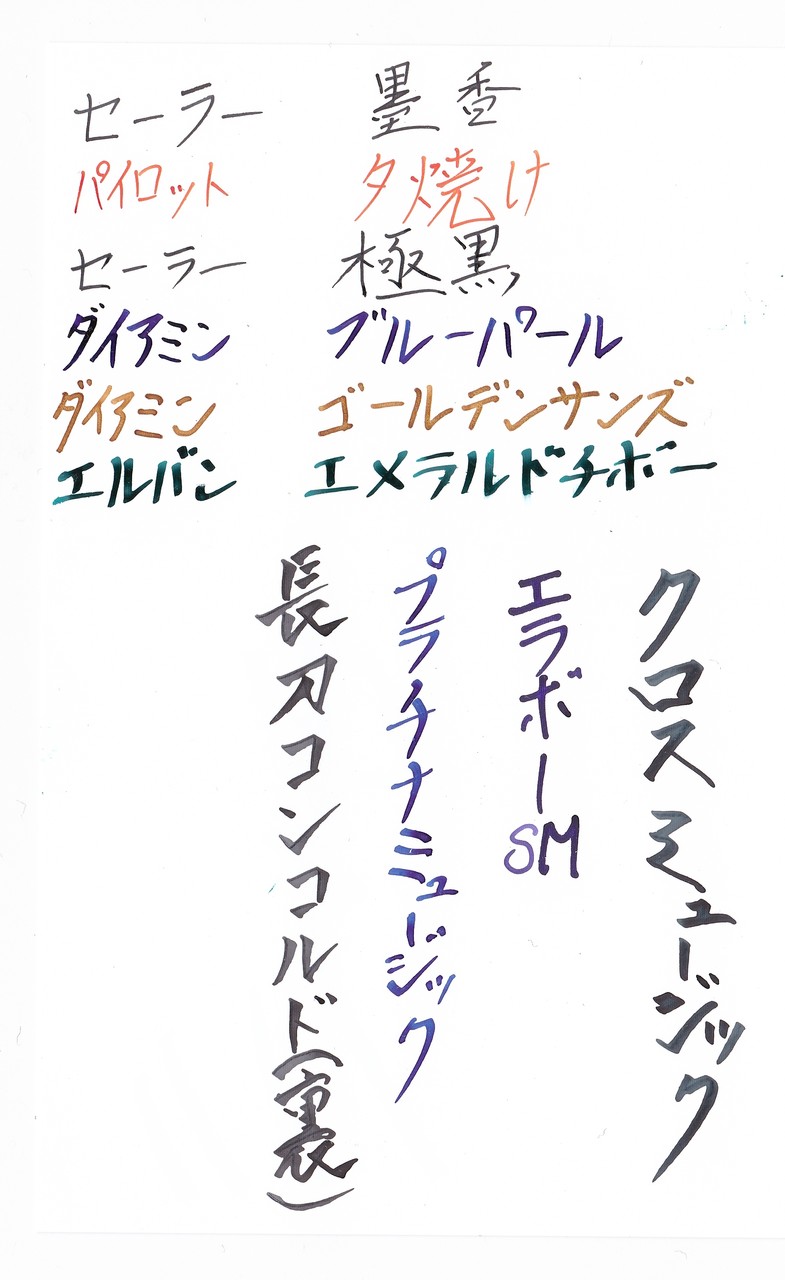 セーラー 墨香
パイロット 夕焼け
セーラー 極黒
ダイアミン ブルーパール
ダイアミン ゴールデンサンズ
エルバン エメラルドチボー
クロスミュージック
エラボーSM
プラチナミュージック
長刀コンコルド(裏)